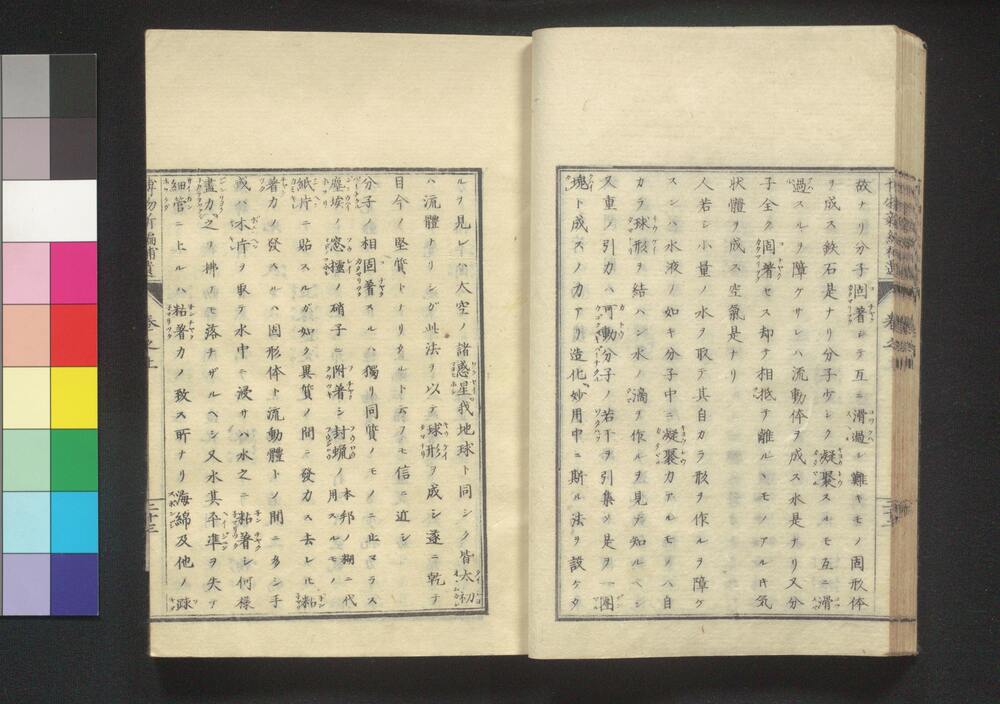 故ナリ分子固著シテ互ニ滑過シ難キモノ固形体
ヲ成ス鉄石是ナリ分子少シク凝聚スルモ互ニ滑
過スルヲ障ケサレハ流動体ヲ成ス水是ナリ又分
子全ク固著セス却テ相抵テ離ルヽモノアルキ気
状體ヲ成ス空氣是ナリ
人若シ小量ノ水ヲ取テ其自カラ形ヲ作ルヲ障ケ
スンハ水液ノ如キ分子中ニ凝聚力アルモノハ自
カラ球形ヲ結ハン水ノ滴ヲ作ルヲ見テ知ルヘシ
又重ノ引力ハ可動分子ノ若干ヲ引集メ是ヲ一團
塊ト成スノ力アリ造化妙用中ニ斯ル法ヲ設ケタ
ルヲ見レハ大空ノ諸惑星我地球ト同シク皆太初
ハ流體トリシガ此法ヲ以テ球形ヲ成シ遂ニ乾テ
目今ノ堅質トナリタルト云フモ信ニ近シ
分子ノ相固著スルハ獨リ同質ノモノニ止マラス
塵埃ノ窓檯ノ硝子ニ附著シ封蝋ノ本邦ノ糊ニ代用スルモノ
紙片ニ貼スルガ如ク異質ノ間ニ發力ス去レ𪜈粘
著力ノ發スルハ固形体ト流動體トノ間ニ多シ手
或ハ木片ヲ取テ水中ニ浸サハ水之ニ粘著シ何様
盡力之ヲ拂フモ落ナザルヘシ又水其平準ヲ失テ
細管ニ上ルハ粘著力ノ致ス所ナリ海綿及他ノ疎
博物新編補遺
巻之上
二十三